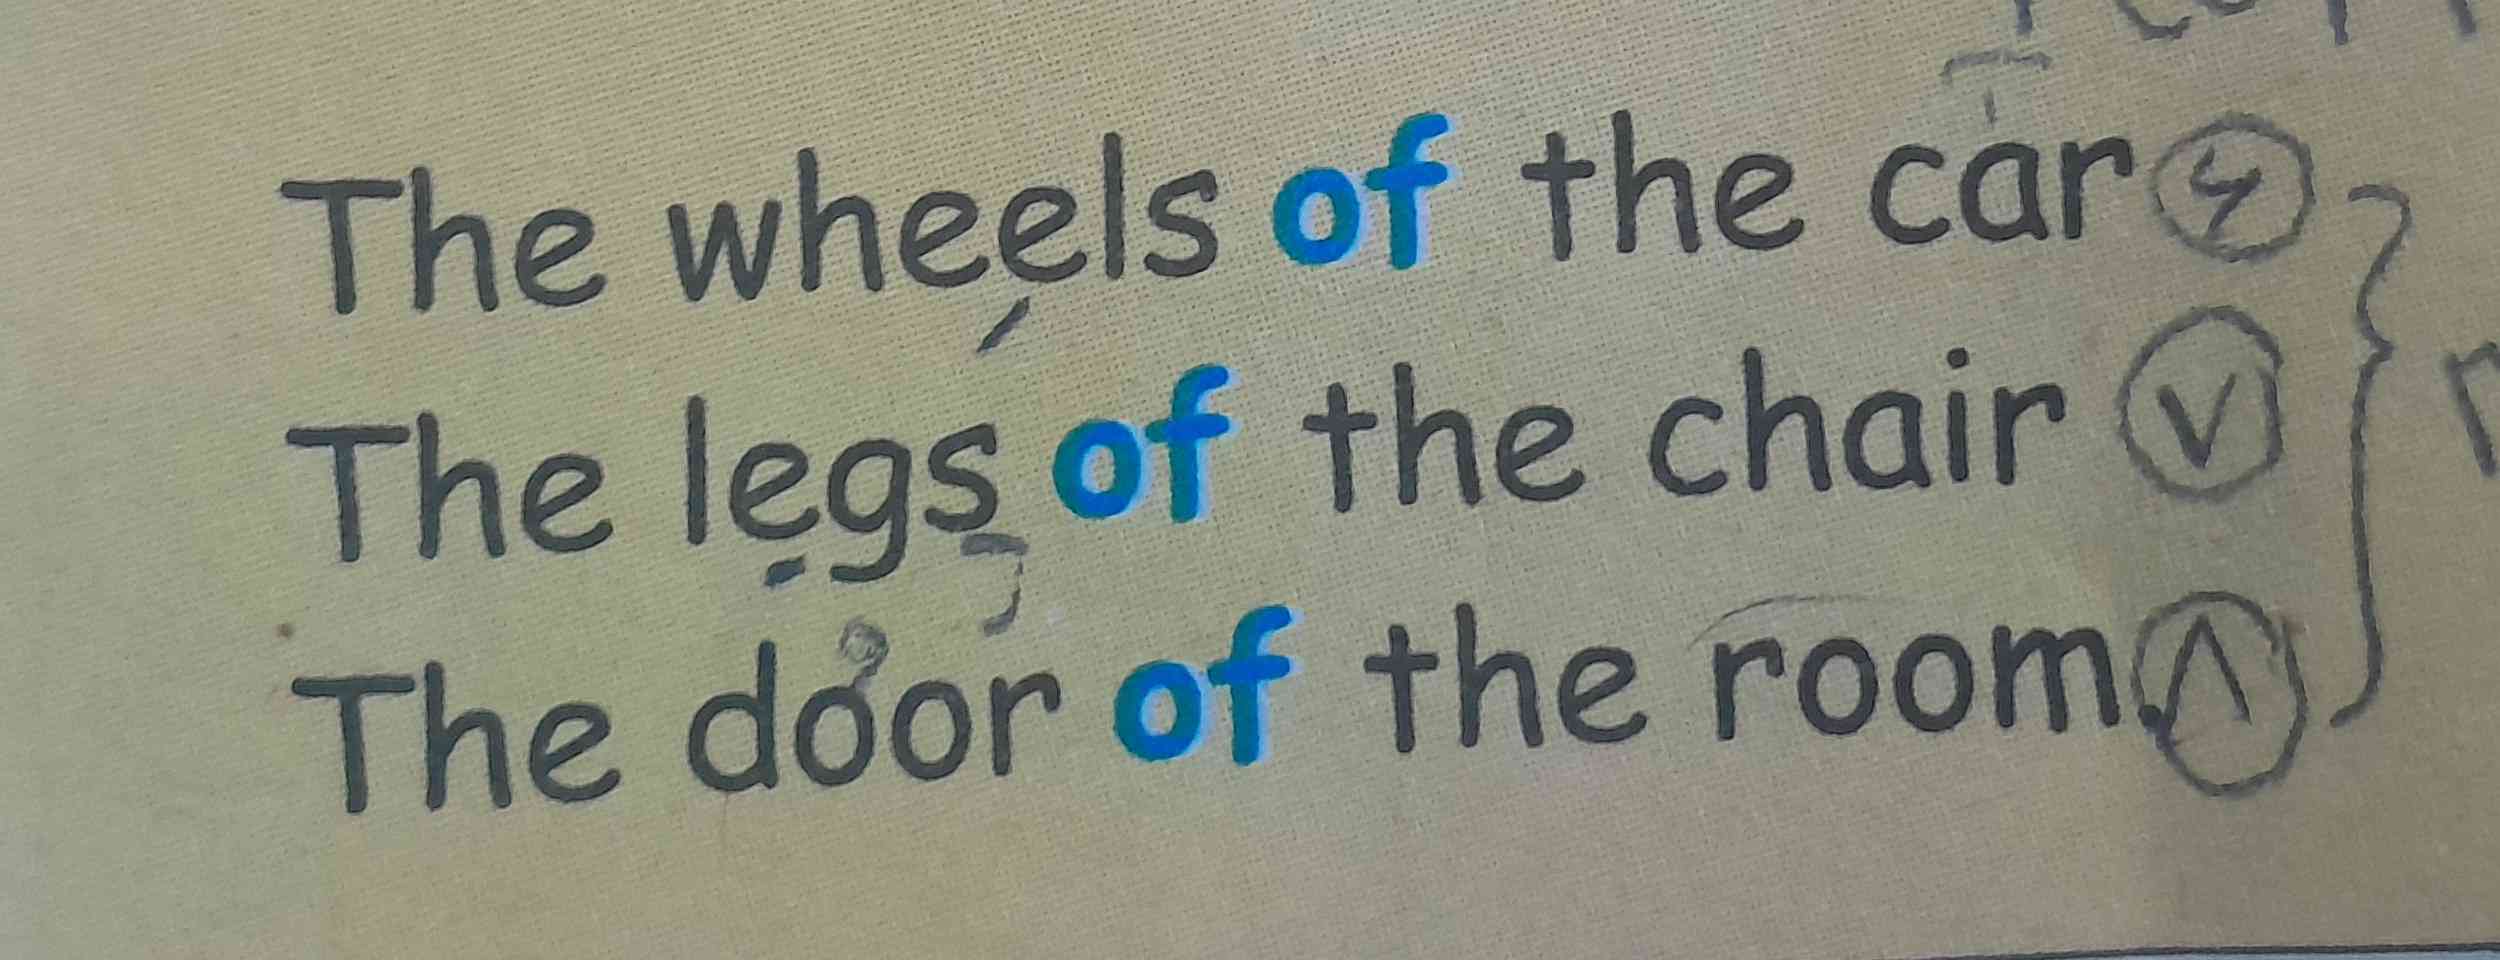 The wheels of the car ۶
The legs of the chair ۷
The door of the room. ۸